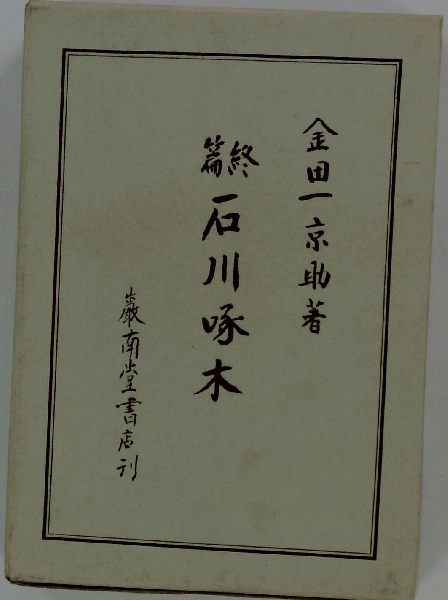 金田一京助著
終篇 石川啄木
巖南堂書店刊